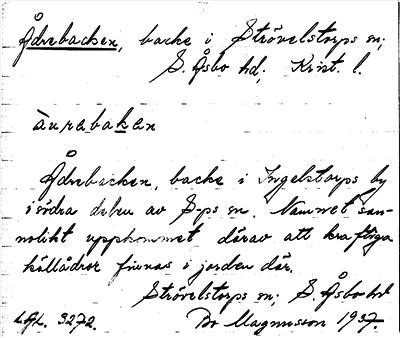 Ådrebacken, backe i Strövelstorps sn;
S. Åsbo hd; Krist. l.
àurabakan
Ådrebacken, backe i Ingelstorps by
i södra delen av S-ps sn. Namnet san-
nolikt uppkommet därav att kraftiga
källådror finnas i jorden där.
Strövelstorps sn; S. Åsbo hd
LAL. 3272. Bo Magnusson 1937.